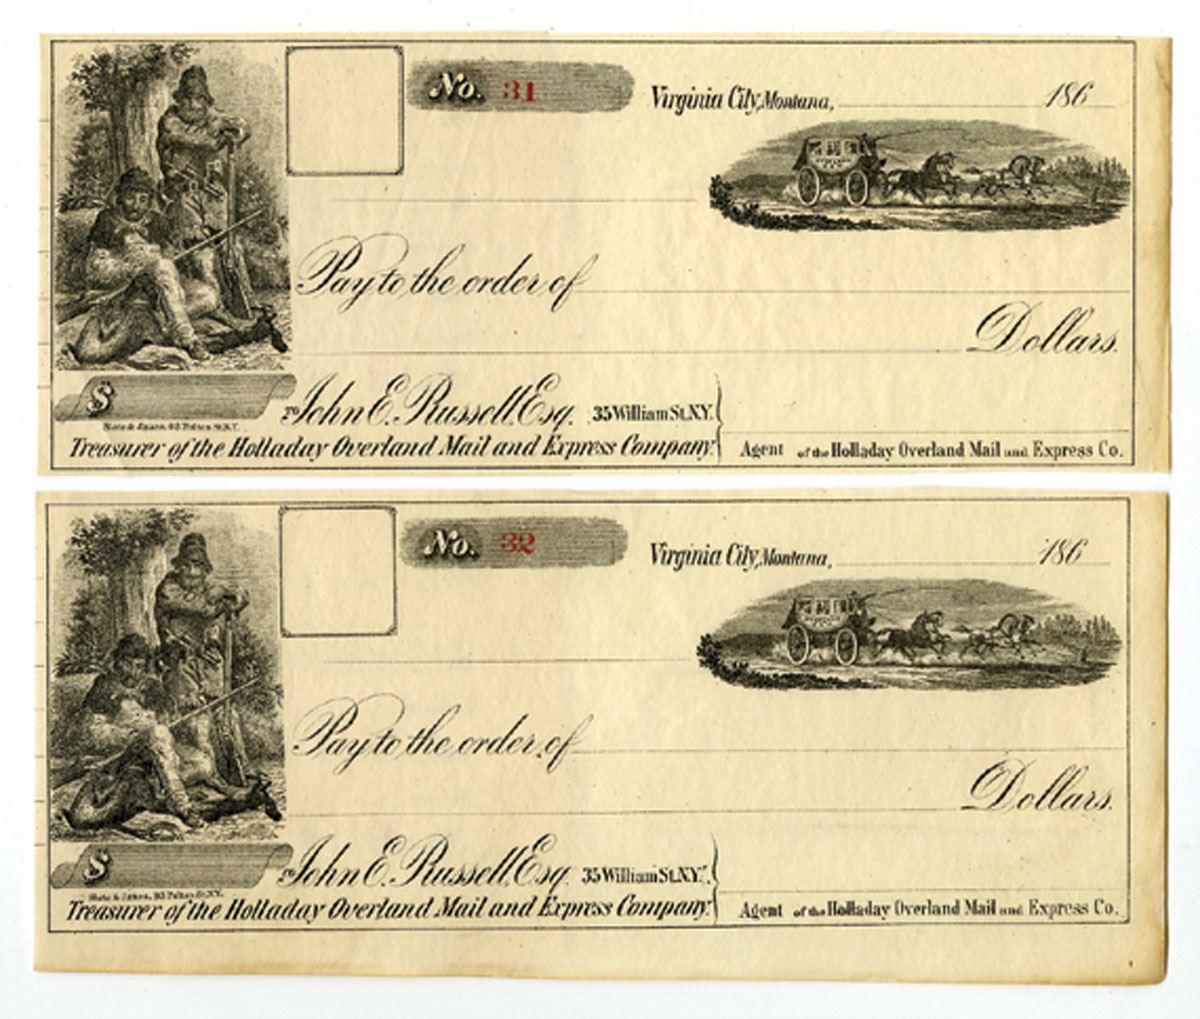 No. 31
Virginia City, Montana, 186
Pay to the order of
Dollars.
$
To John E. Russell, Esq. 35 William St. N.Y.
Slote & Janes, 93 Fulton St. N.Y.
Treasurer of the Holladay Overland Mail and Express Company.
Agent of the Holladay Overland Mail and Express Co.
No. 32
Virginia City, Montana, 186
Pay to the order of
Dollars.
$
To John E. Russell, Esq. 35 William St. N.Y.
Slote & Janes, 93 Fulton St. N.Y.
Treasurer of the Holladay Overland Mail and Express Company.
Agent of the Holladay Overland Mail and Express Co.